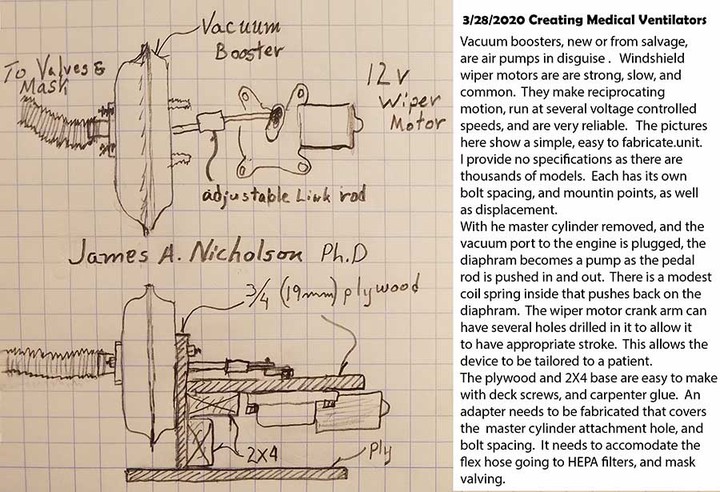 Vacuum
Booster
To Valves &
Mask
12 v
Wiper
Motor
adjustable Link rod
James A. Nicholson Ph.D
3/4 (19mm) plywood
2X4
Ply
3/28/2020 Creating Medical Ventilators
Vacuum boosters, new or from salvage,
are air pumps in disguise . Windshield
wiper motors are are strong, slow, and
common. They make reciprocating
motion, run at several voltage controlled
speeds, and are very reliable. The pictures
here show a simple, easy to fabricate.unit.
I provide no specifications as there are
thousands of models. Each has its own
bolt spacing, and mountin points, as well
as displacement.
With he master cylinder removed, and the
vacuum port to the engine is plugged, the
diaphram becomes a pump as the pedal
rod is pushed in and out. There is a modest
coil spring inside that pushes back on the
diaphram. The wiper motor crank arm can
have several holes drilled in it to allow it
to have appropriate stroke. This allows the
device to be tailored to a patient.
The plywood and 2X4 base are easy to make
with deck screws, and carpenter glue. An
adapter needs to be fabricated that covers
the master cylinder attachment hole, and
bolt spacing. It needs to accomodate the
flex hose going to HEPA filters, and mask
valving.